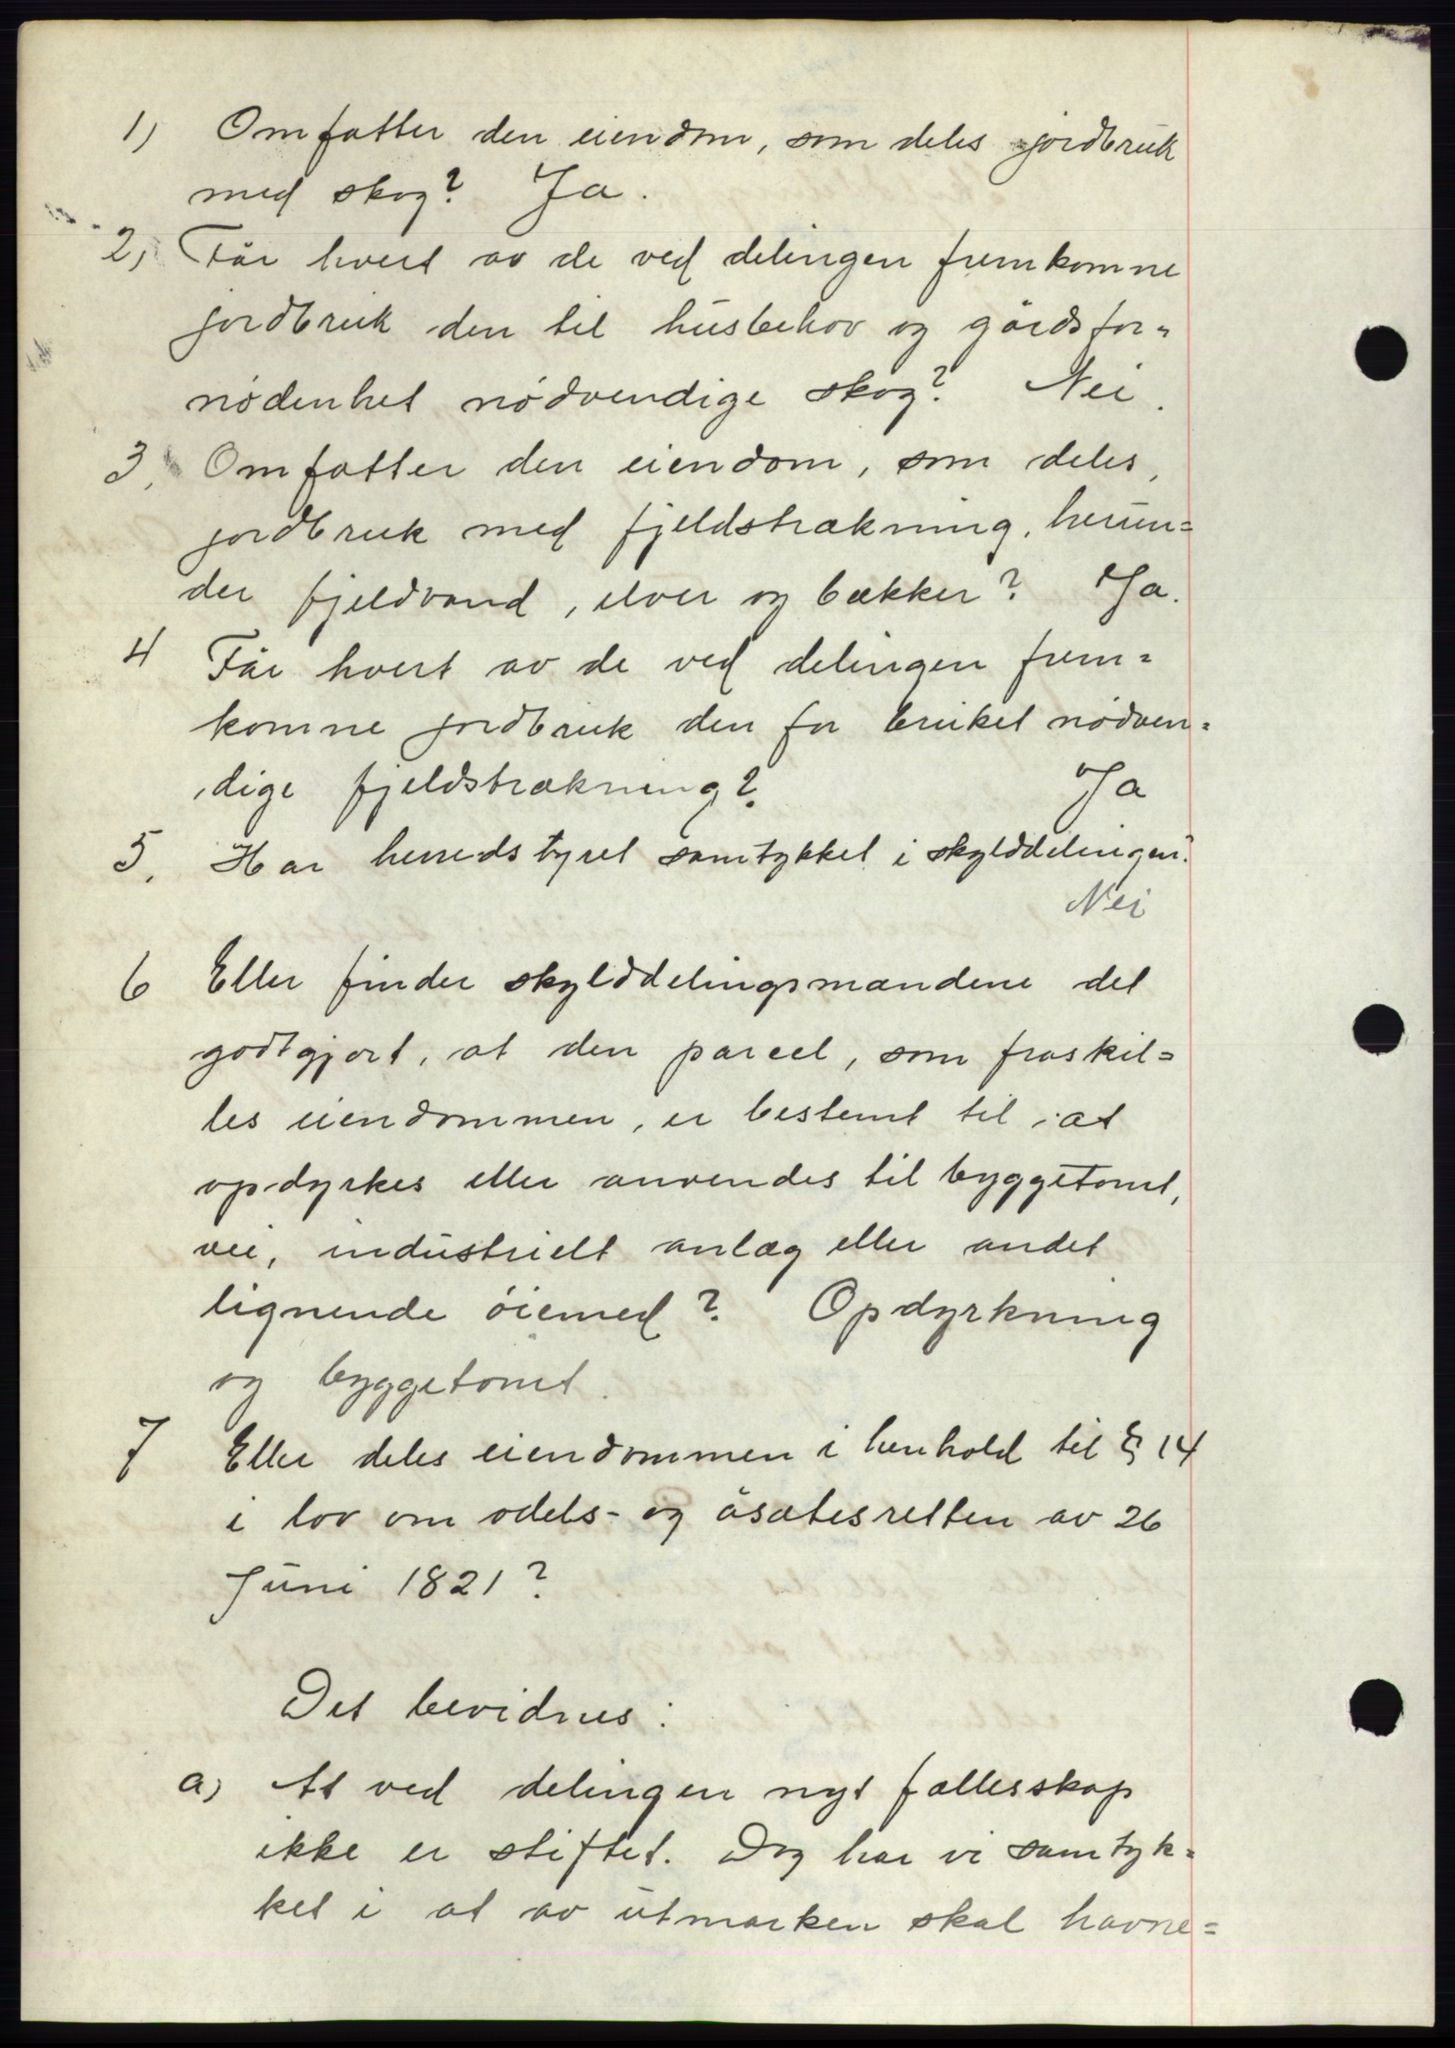 1) Omfatter den eiendom, som deles jordbruk
med skog? Ja.
2, Får hvert av de ved delingen fremkomne
jordbruk den til husbehov og gårdsfor=
nødenhet nødvendige skog? Nei.
3, Omfatter den eiendom, som deles,
jordbruk med fjeldstrækning, herun=
der fjeldvand, elver og bækker? Ja.
4 Får hvert av de ved delingen frem=
komne jordbruk den for bruket nødven=
dige fjeldstrækning? Ja
5. Har herredstyret samtykket i skylddelingen?
Nei
6 Eller finder skylddelingsmændene det
godtgjort, at den parcel, som fraskil=
les eiendommen, er bestemt til at
opdyrkes eller anvendes til byggetomt,
vei, industrielt anlæg eller andet
lignende öiemed? Opdyrkning
og byggetomt.
7 Eller deles eiendommen i henhold til § 14
i lov om odels- og åsætesretten av 26
Juni 1821?
Det bevidnes:
a) At ved delingen nyt fællesskap
ikke er stiftet. Dog har vi samtyk=
ket i at av utmarken skal havne=